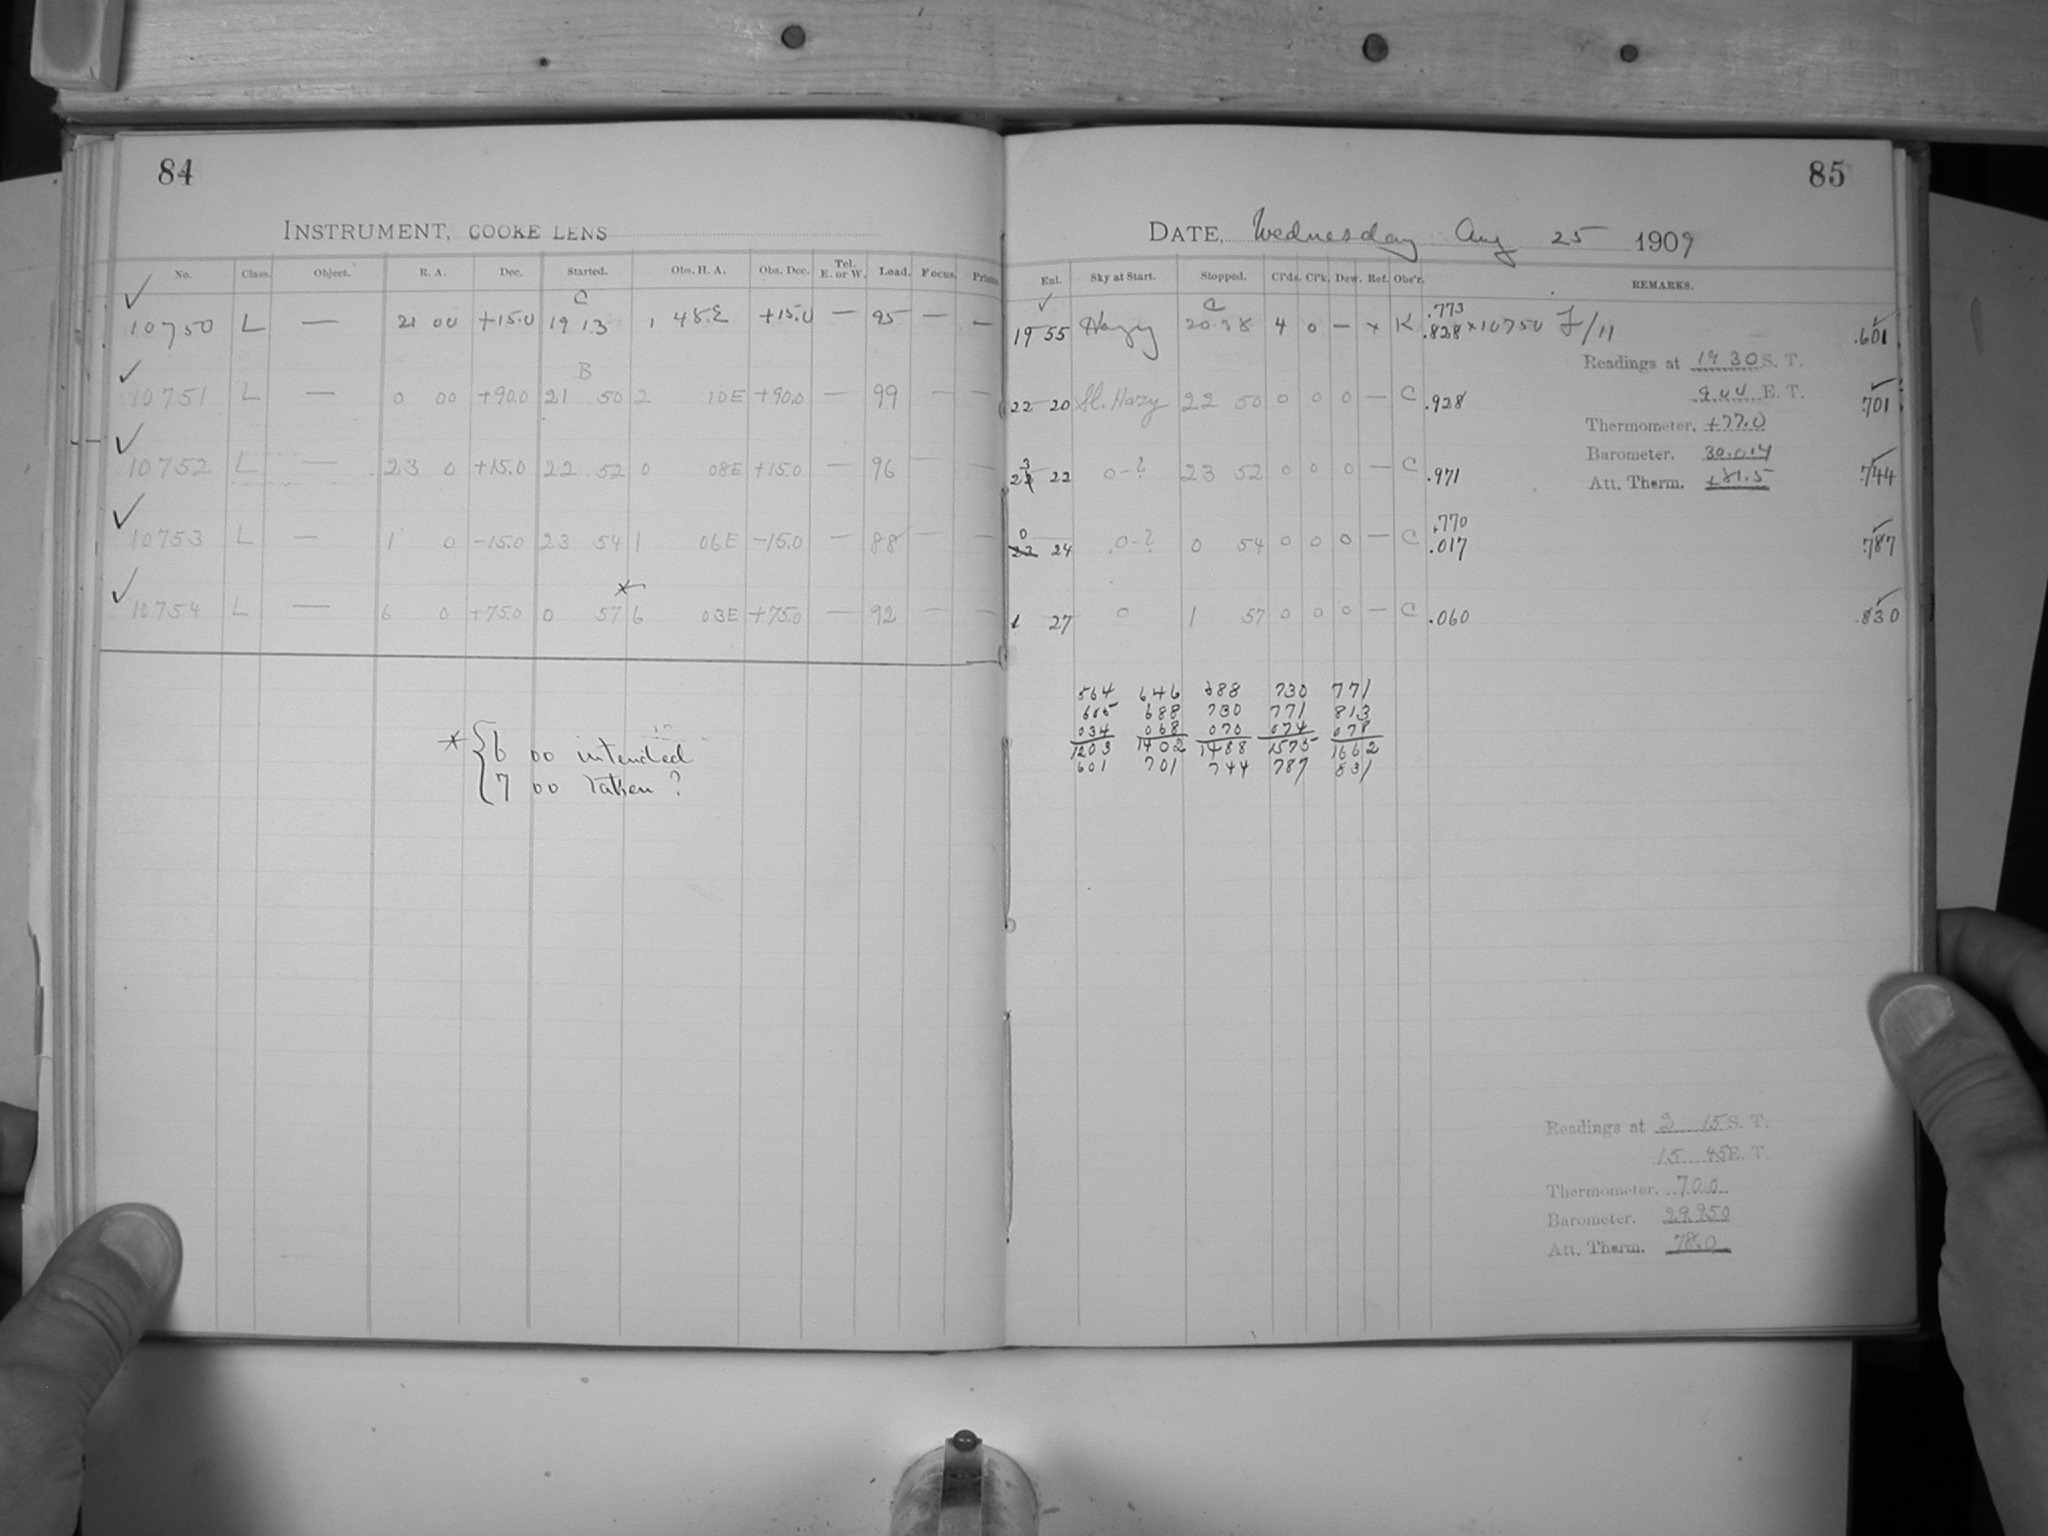 84
INSTRUMENT, COOKE LENS
No. Class. Object. R. A. Dec. Started. Obs. H. A. Obs. Dec. Tel. E. or W. Load. Focus. Prisms
C
10750 L — 21 00 +15.0 19 13 1 48E +15.0 — 95 — —
B
10751 L — 0 00 +90.0 21 50 2 10E +90.0 — 99 — —
10752 L — 23 0 +15.0 22 52 0 08E +15.0 — 96 — —
10753 L — 1 0 -15.0 23 54 1 06E -15.0 — 88 — —
10754 L — 6 0 +75.0 0 57* 6 03E +75.0 — 92 — —
* { 6 00 intended
{ 7 00 taken?
85
DATE, Wednesday Aug 25 1909
Ent. Sky at Start. Stopped. Cl'ds. Cl'k. Dew. Ref. Obs'r. REMARKS.
C .773
19 55 Hazy 20 38 4 0 — x K .828 x 10750 F/11 .601
Readings at 19 30 S. T.
9 04 E. T.
22 20 Sl. Hazy 22 50 0 0 0 — C .928 .701
Thermometer, +77.0
Barometer. 30.014
3
22 22 0-? 23 52 0 0 0 — C .971 .744
Att. Therm. +81.5
0 .770
23 24 0-? 0 54 0 0 0 — C .017 .787
1 27 0 1 57 0 0 0 — C .060 .830
564 646 688 730 771
605 688 730 771 813
034 068 070 074 078
1203 1402 1488 1575 1662
601 701 744 787 831
Readings at 2 15 S. T.
15 45 E. T.
Thermometer. 70.0
Barometer. 29.950
Att. Therm. 78.0